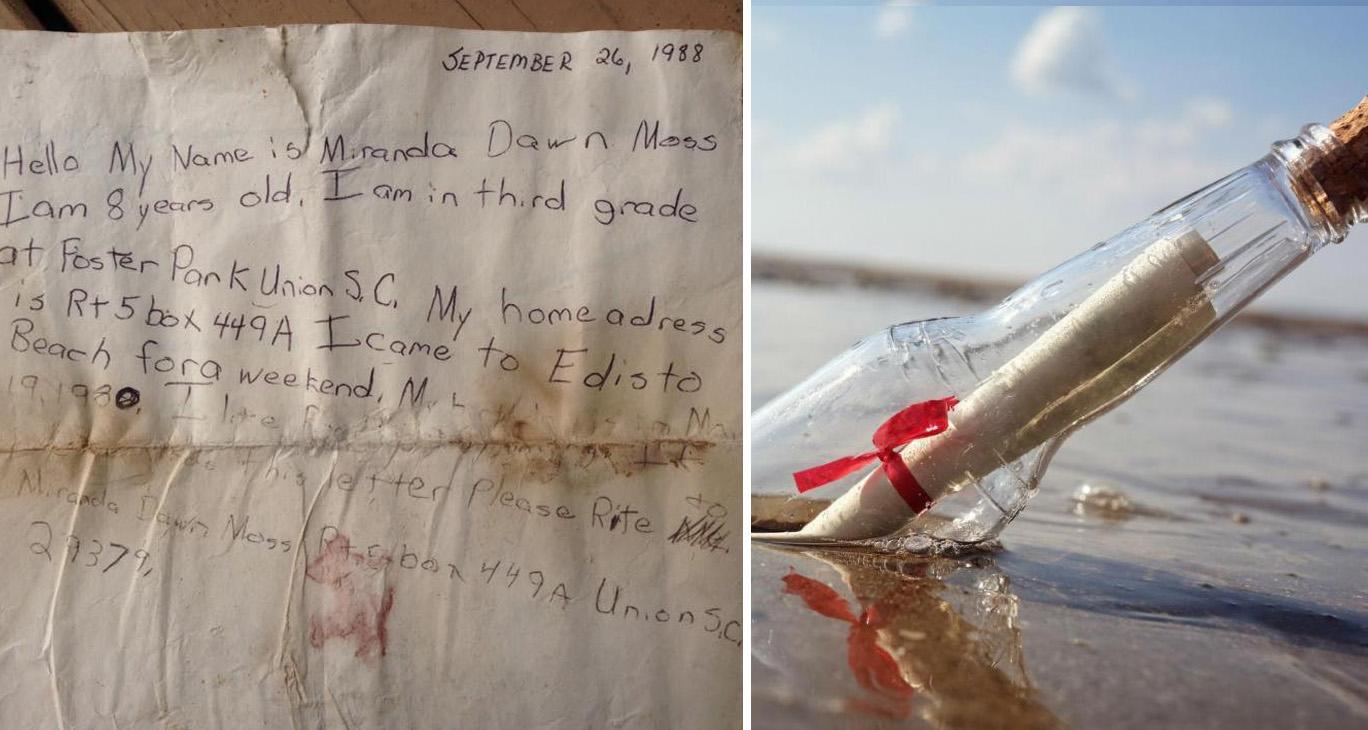 SEPTEMBER 26, 1988
Hello My Name is Miranda Dawn Moss
I am 8 years old. I am in third grade
at Foster Park Union S.C. My home adress
is Rt 5 box 449A I came to Edisto
Beach for a weekend.
I like
this letter Please Rite to
Miranda Dawn Moss Rt 5 box 449A Union S.C.
29379,